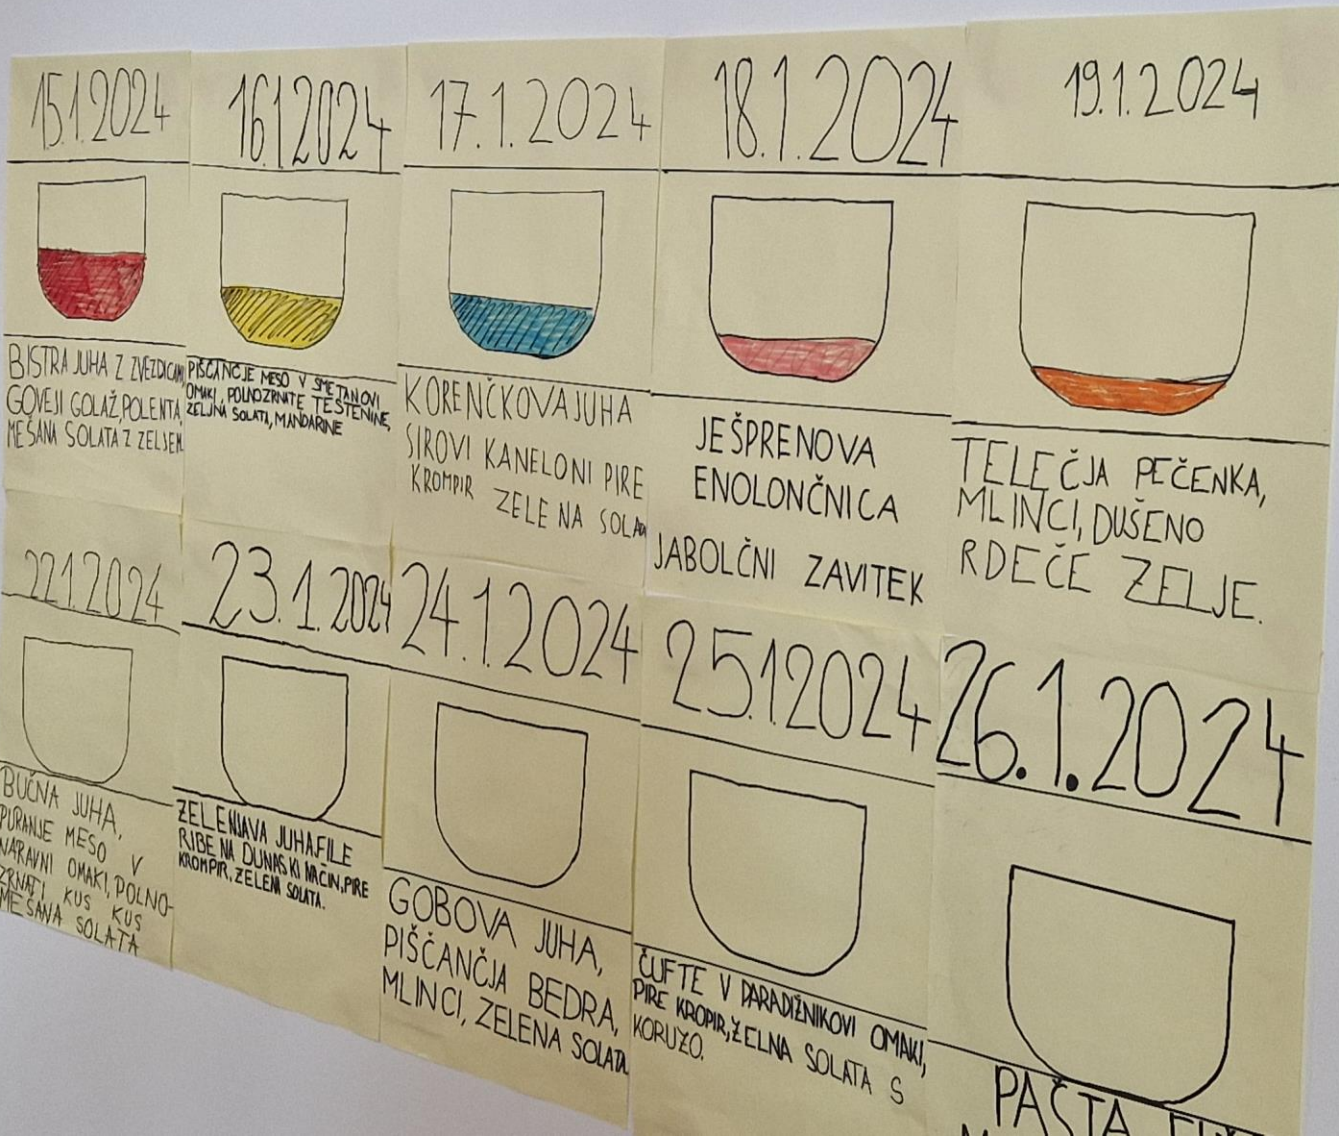 15.1.2024
BISTRA JUHA Z ZVEZDICAMI
GOVEJI GOLAŽ, POLENTA,
MEŠANA SOLATA Z ZELJEM.
16.1.2024
PIŠČANČJE MESO V SMETANOVI
OMAKI, POLNOZRNATE TESTENINE,
ZELJNA SOLATA, MANDARINE
17.1.2024
KORENČKOVA JUHA
SIROVI KANELONI PIRE
KROMPIR ZELENA SOLATA
18.1.2024
JEŠPRENOVA
ENOLONČNICA
JABOLČNI ZAVITEK
19.1.2024
TELEČJA PEČENKA,
MLINCI, DUŠENO
RDEČE ZELJE.
22.1.2024
BUČNA JUHA,
PURANJE MESO V
NARAVNI OMAKI, POLNO-
ZRNATI KUS KUS
MEŠANA SOLATA
23.1.2024
ZELENJAVA JUHA, FILE
RIBE NA DUNAJSKI NAČIN, PIRE
KROMPIR, ZELENA SOLATA.
24.1.2024
GOBOVA JUHA,
PIŠČANČJA BEDRA,
MLINCI, ZELENA SOLATA
25.1.2024
ČUFTE V PARADIŽNIKOVI OMAKI,
PIRE KROPIR, ŽELNA SOLATA S
KORUZO.
26.1.2024
PAŠTA